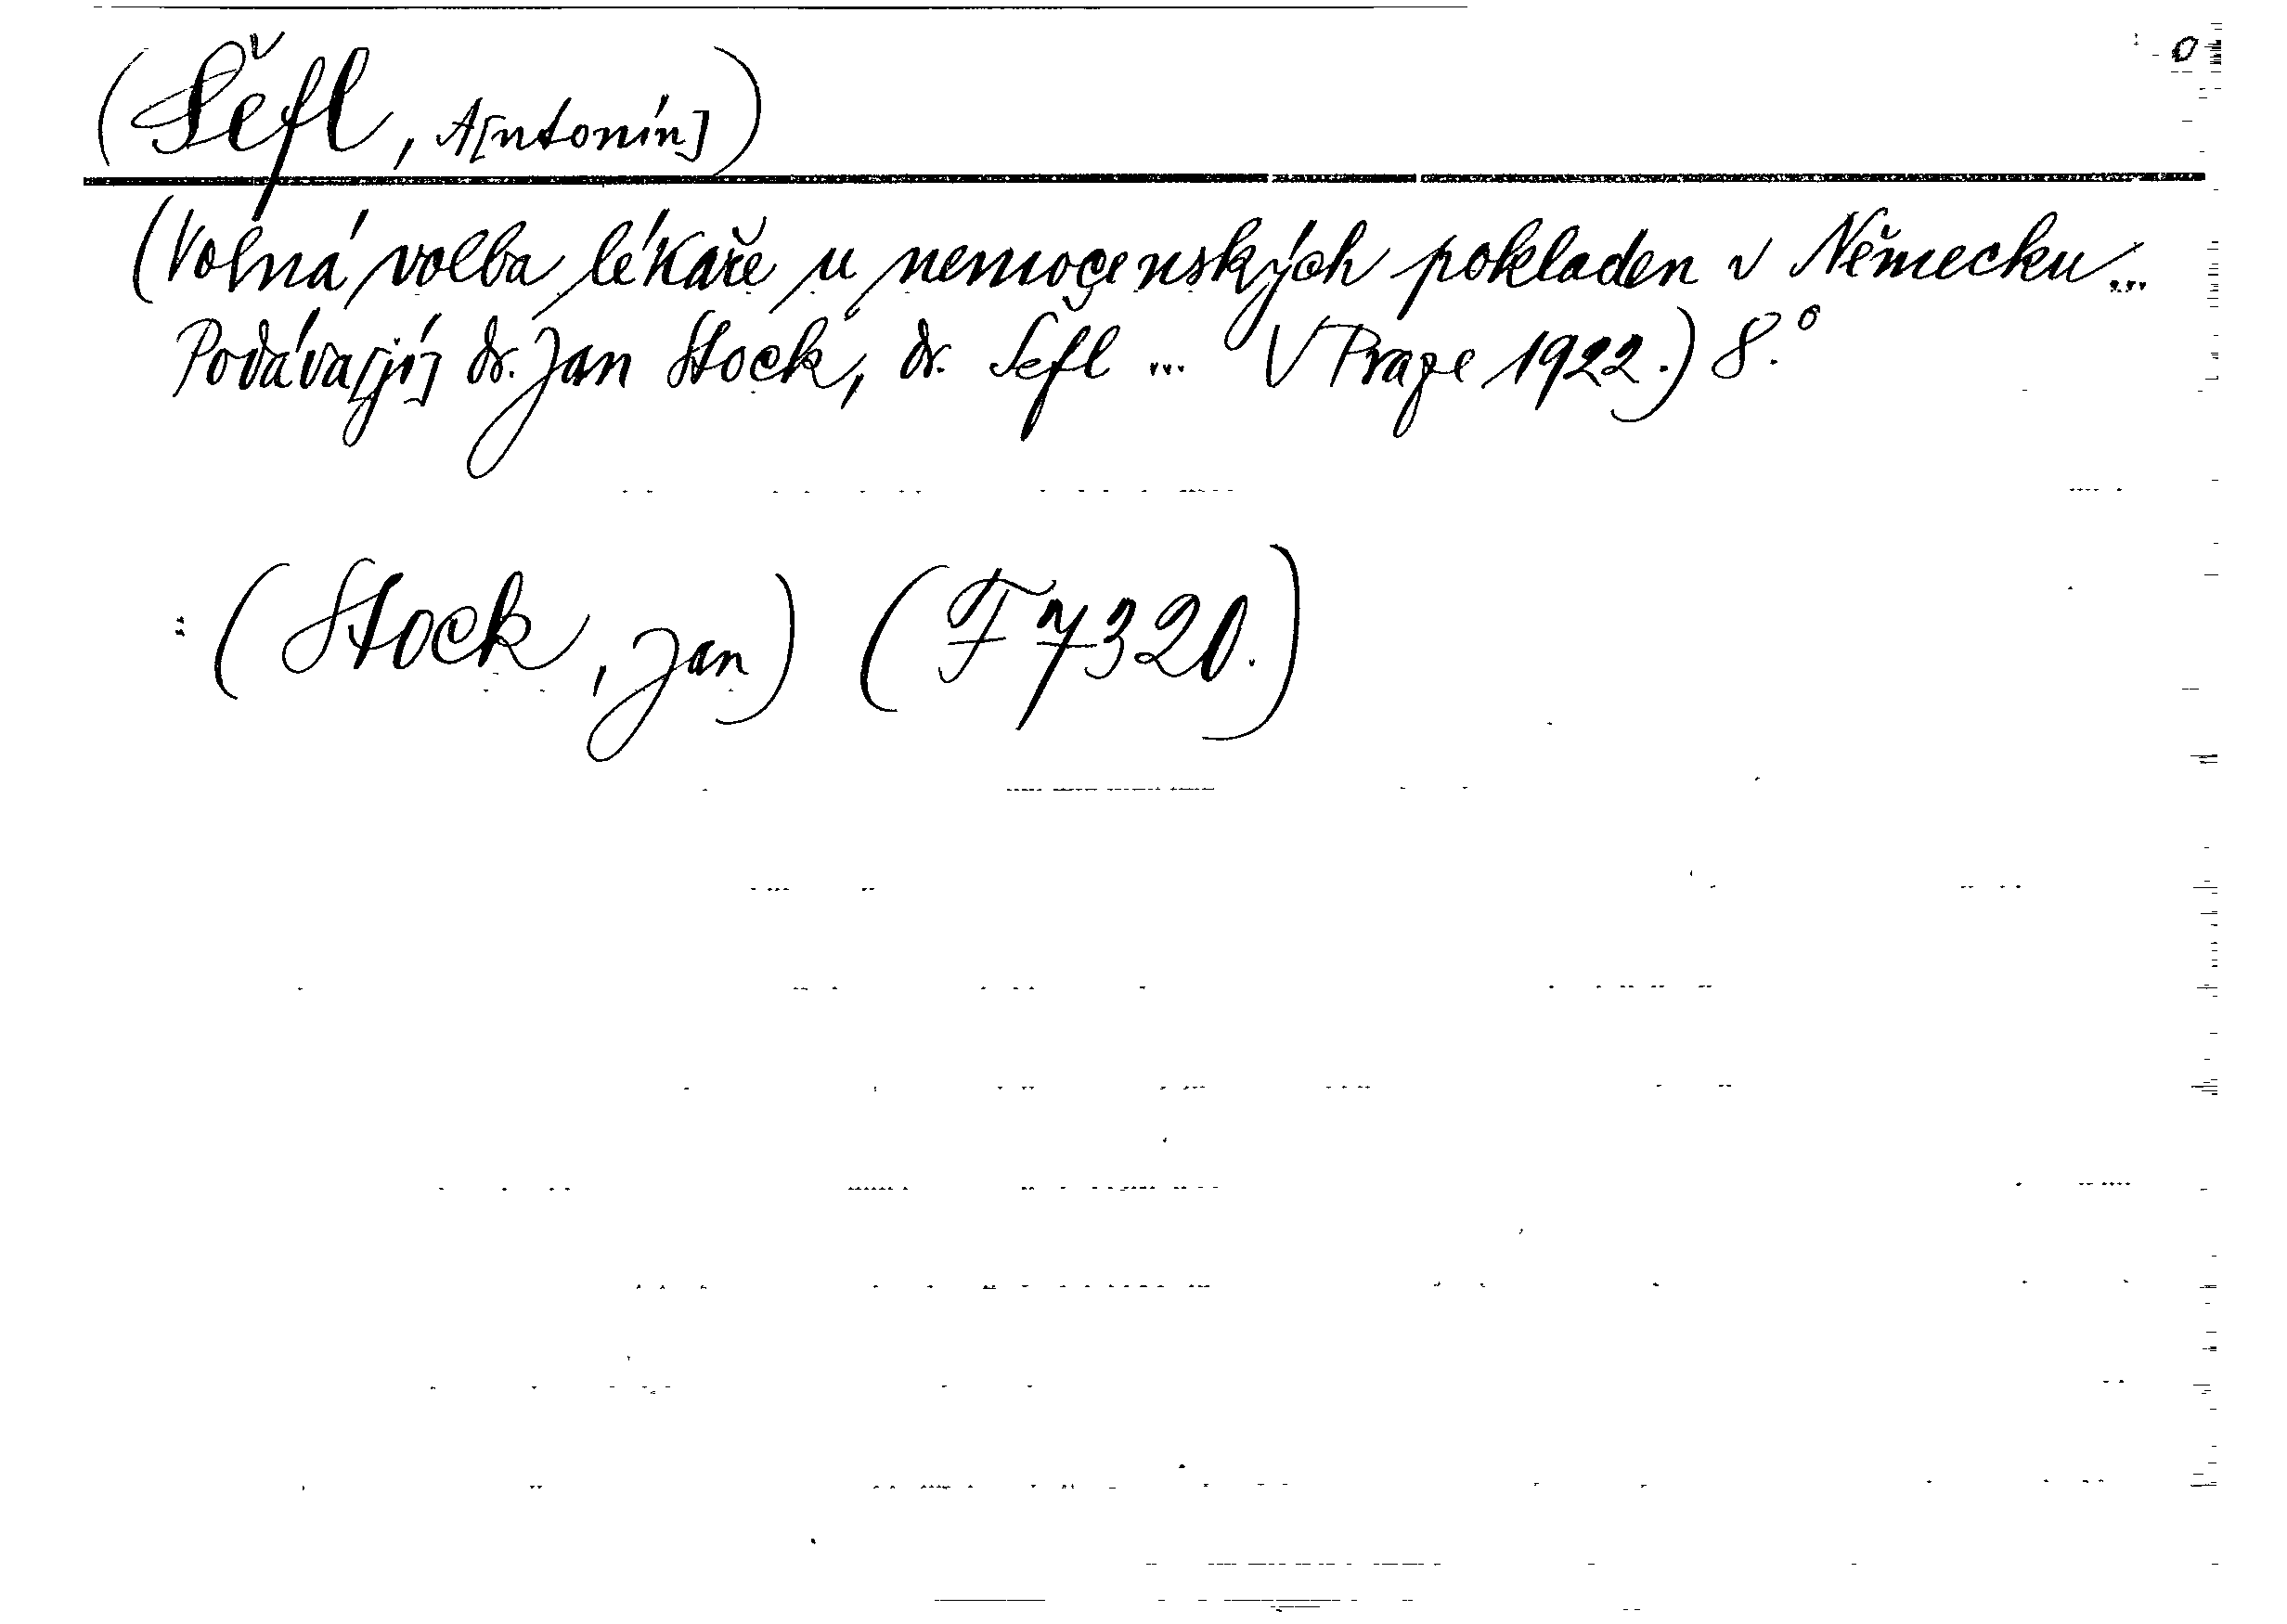 0
(Šéfl, A[ntonín])
(Volná volba lékaře u nemocenských pokladen v Německu...
Podáva[jí] dr. Jan Stock, dr. Šefl ... V Praze 1922.) 8.°
: (Stock, Jan) (F 7320.)